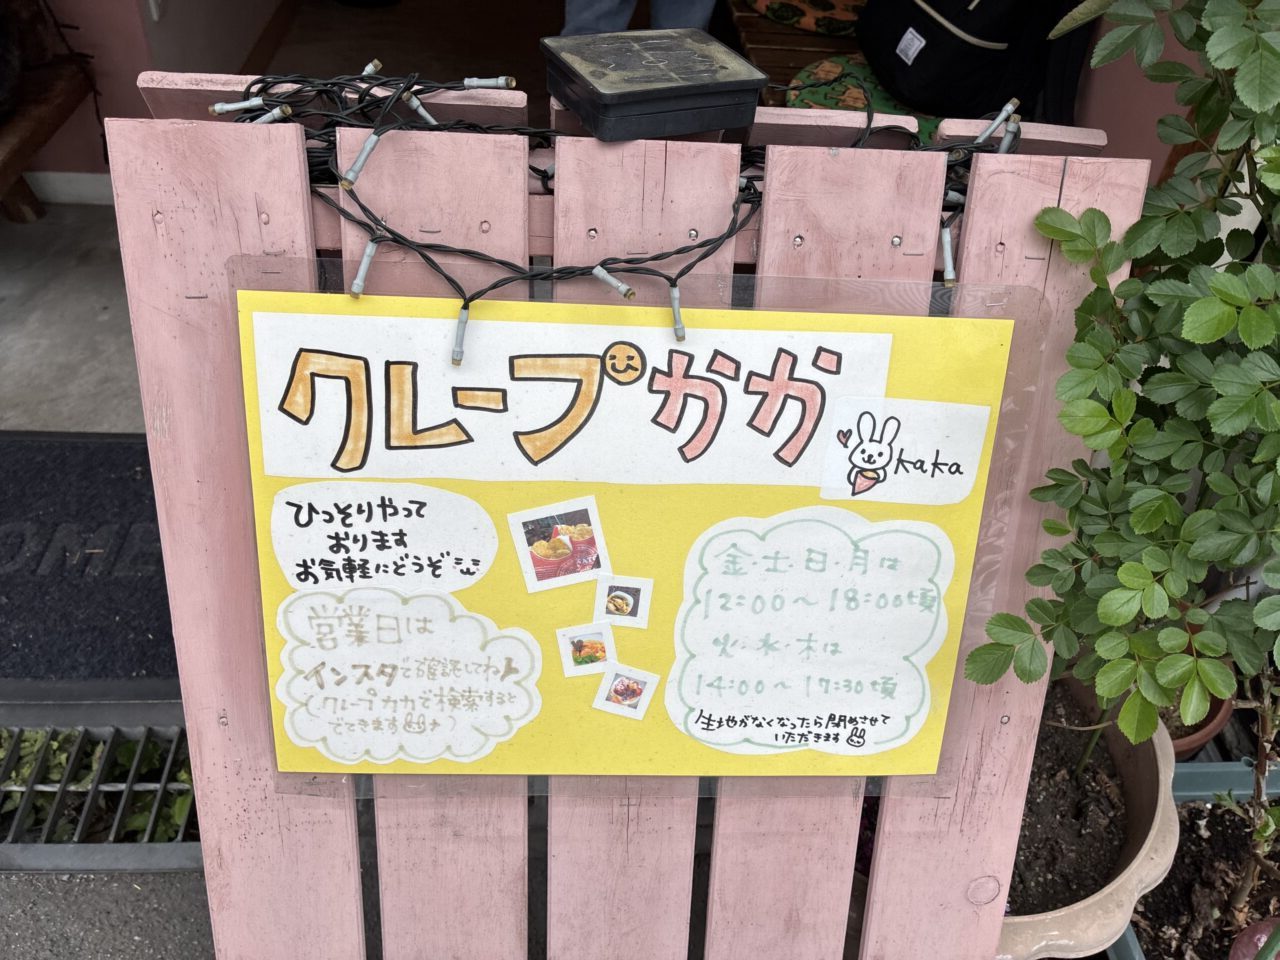 クレープかか
kaka
ひっそりやって
おります
お気軽にどうぞ
営業日は
インスタで確認してね♪
(クレープカカで検索すると
でてきます♪)
金・土・日・月は
12:00〜18:00頃
火・水・木は
14:00〜17:30頃
生地がなくなったら閉めさせて
いただきます